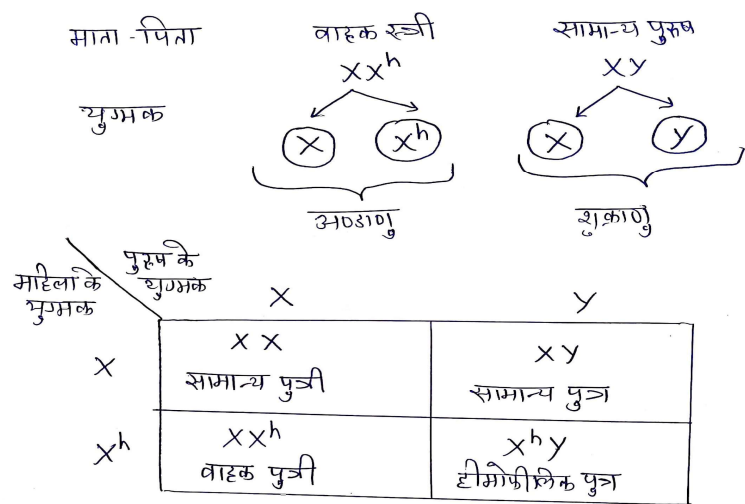 माता-पिता वाहक स्त्री सामान्य पुरुष
XXʰ XY
युग्मक
X Xʰ X Y
अण्डाणु शुक्राणु
पुरुष के युग्मक
महिला के युग्मक
X Y
X
XX
सामान्य पुत्री
XY
सामान्य पुत्र
Xʰ
XXʰ
वाहक पुत्री
XʰY
हीमोफीलिक पुत्र